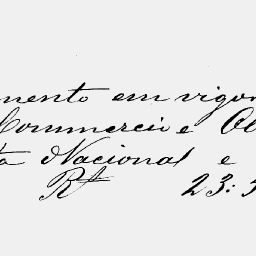 mento em vigor
Commercio e Ol
ta Nacional e
Rs 23:3